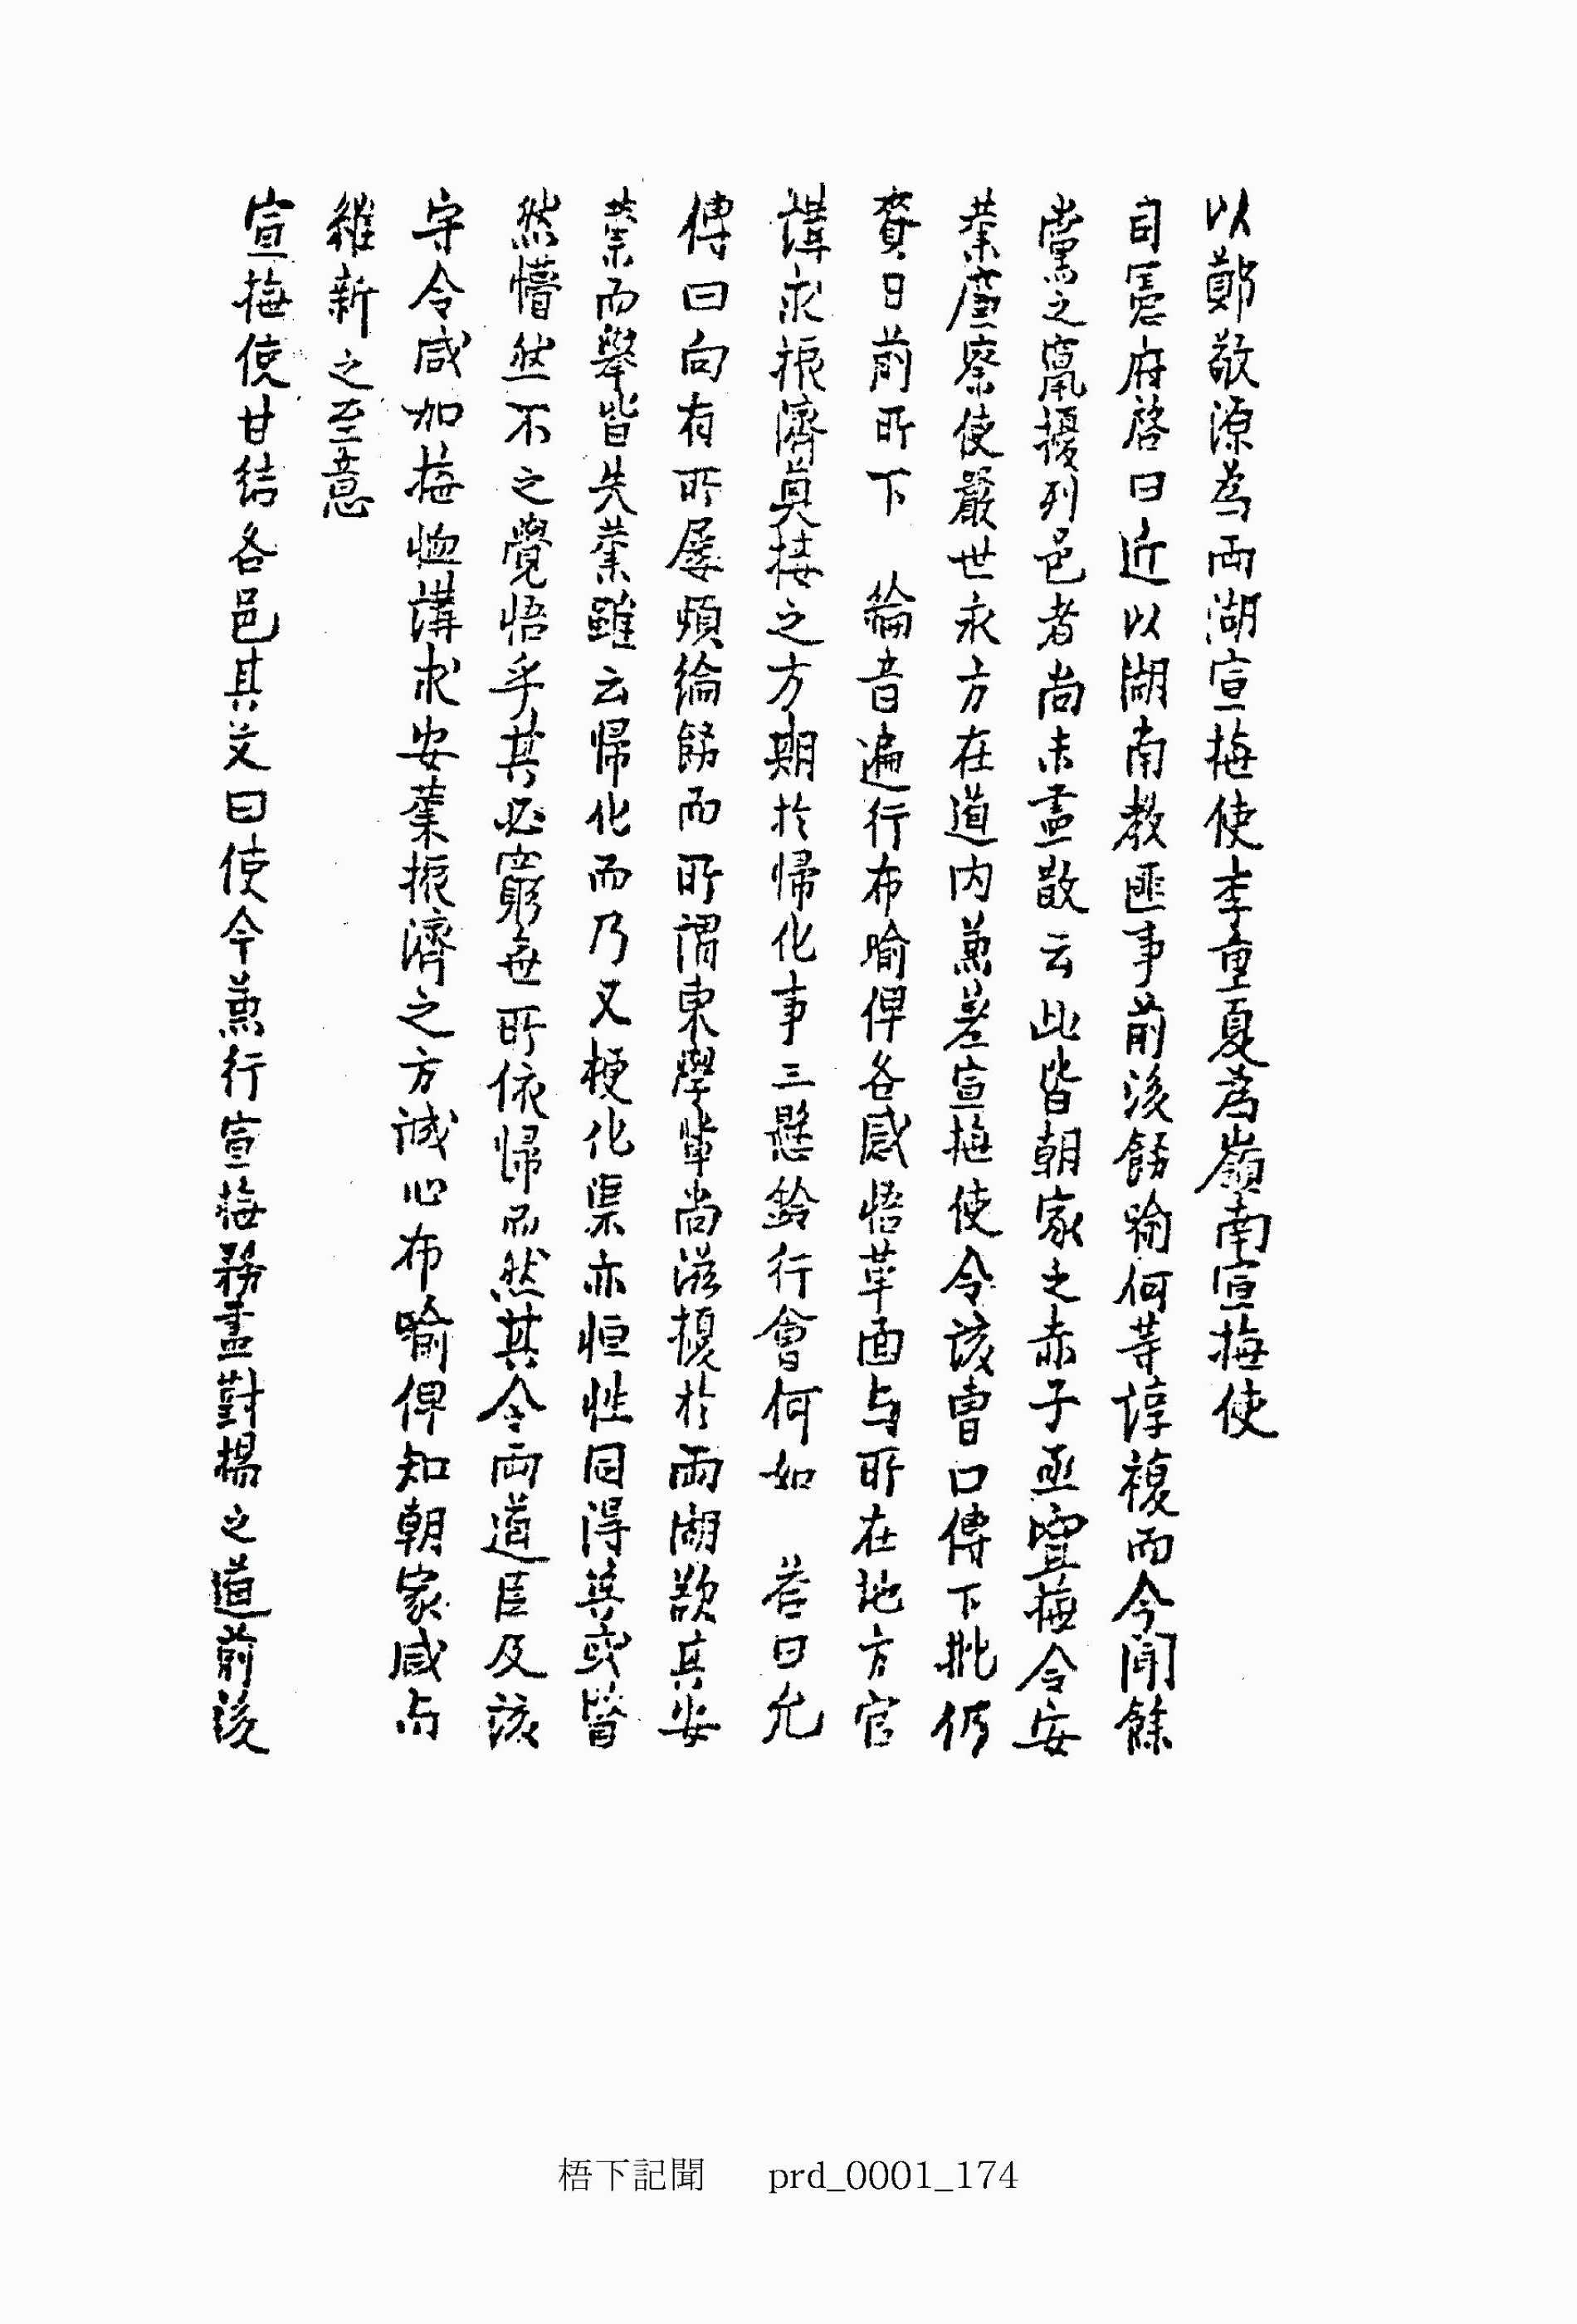 以鄭敬源為兩湖宣撫使李重夏為嶺南宣撫使
自議府啓曰近以湖南教匪事前後飭喻何等諄複而今聞餘
黨之竄擾列邑者尚未盡散云此皆朝家之赤子亟宜撫令安
業廉察使嚴世永方在道內兼差宣撫使令該曹口傳下批仍
賫日前所下 綸音遍行布喻俾各感悟革面与所在地方官
講求振濟奠接之方期於歸化事三懸鈴行會何如 答曰允
傳曰向有所屢煩綸飭而所謂東學輩尚滋擾於兩湖欲其安
業而舉皆失業雖云歸化而乃又梗化渠亦恒性同得莫或皆
然懵然不之覺悟乎其必窮無所依歸而然其令兩道臣及該
守令咸加撫恤講求安業振濟之方誠心布喻俾知朝家咸与
維新之至意
宣撫使甘結各邑其文曰使今兼行宣撫務盡對揚之道前後
梧下記聞 prd_0001_174